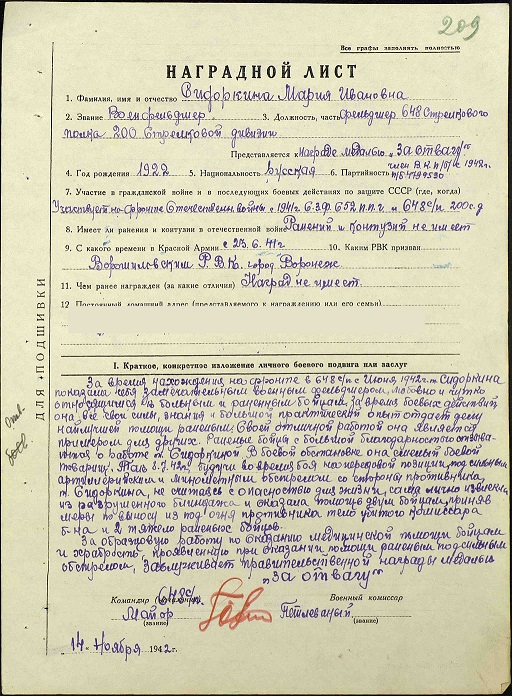 209
Все графы заполнять полностью
НАГРАДНОЙ ЛИСТ
1. Фамилия, имя и отчество Сидоркина Мария Ивановна
2. Звание Военфельдшер 3. Должность, часть Фельдшер 648 Стрелкового
полка 200 Стрелковой дивизии
Представляется к Награде медалью „За отвагу"
4. Год рождения 1922 5. Национальность Русская 6. Партийность член В.К.П/б/ с 1942г.
п/б
7. Участие в гражданской войне и в последующих боевых действиях по защите СССР (где, когда)
Участвует на фронте Отечественн. войны с 1941г. С.З.Ф. 652 п.п.г. и 648 с/п 200 с.д
8. Имеет ли ранения и контузии в отечественной войне Ранений и контузий не имеет
9. С какого времени в Красной Армии с 23.6.41г 10. Каким РВК призван
Ворошиловским Р.В.К. город Воронеж
11. Чем ранее награжден (за какие отличия) Наград не имеет.
12 Постоянный домашний адрес (представляемого к награждению или его семьи)
ДЛЯ ПОДШИВКИ
I. Краткое, конкретное изложение личного боевого подвига или заслуг
За время нахождения на фронте в 648 с/п с Июня 1942г. т. Сидоркина
показала себя замечательным военным фельдшером, любовно и чутко
относящимся к больным и раненным бойцам. За время боевых действий
она все свои силы, знания и большой практический опыт отдает делу
наилучшей помощи раненым. Своей отличной работой она является
примером для других. Раненые бойцы с большой благодарностью отзыва-
ются о работе т. Сидоркиной. В боевой обстановке она смелый боевой
товарищ. Так 2.7.42г. будучи во время боя на передовой позиции, под сильным
артиллерийским и минометным обстрелом со стороны противника,
т. Сидоркина, не считаясь с опасностью для жизни, сама лично извлекла
из разрушенного блиндажа и оказала помощь двум бойцам, приняв
меры по выносу из под огня противника тело убитого комиссара
б-на и 2 тяжело раненых бойцов.
За образцовую работу по оказанию медицинской помощи бойцам
и храбрость, проявленную при оказании помощи раненым под сильным
обстрелом, Заслуживает правительственной награды Медалью
„За отвагу"
Командир 648 с/п. Военный комиссар
Майор Петлеваный
(звание) (звание)
„14" Ноября 1942г.